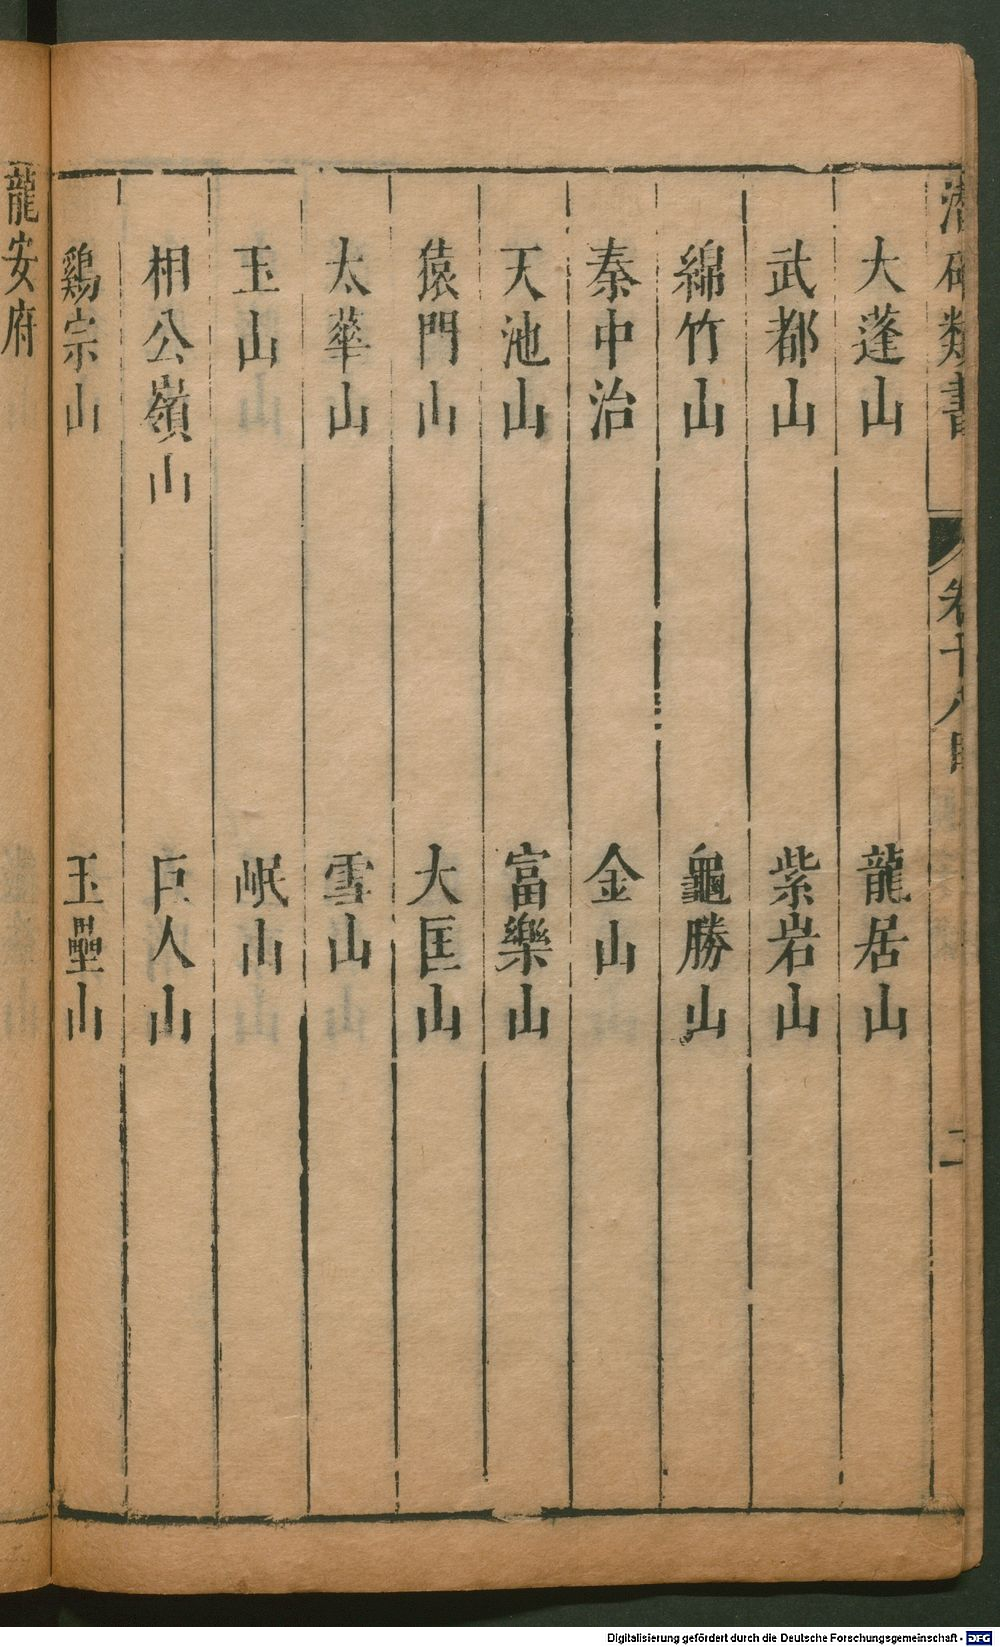 潛確類書 卷十八目 二
大蓬山 龍居山
武都山 紫岩山
綿竹山 龜勝山
秦中治 金山
天池山 富樂山
猿門山 大匡山
太華山 雪山
玉山 岷山
相公嶺山 巨人山
鷄宗山 玉壘山
龍安府
Digitalisierung gefördert durch die Deutsche Forschungsgemeinschaft - DFG